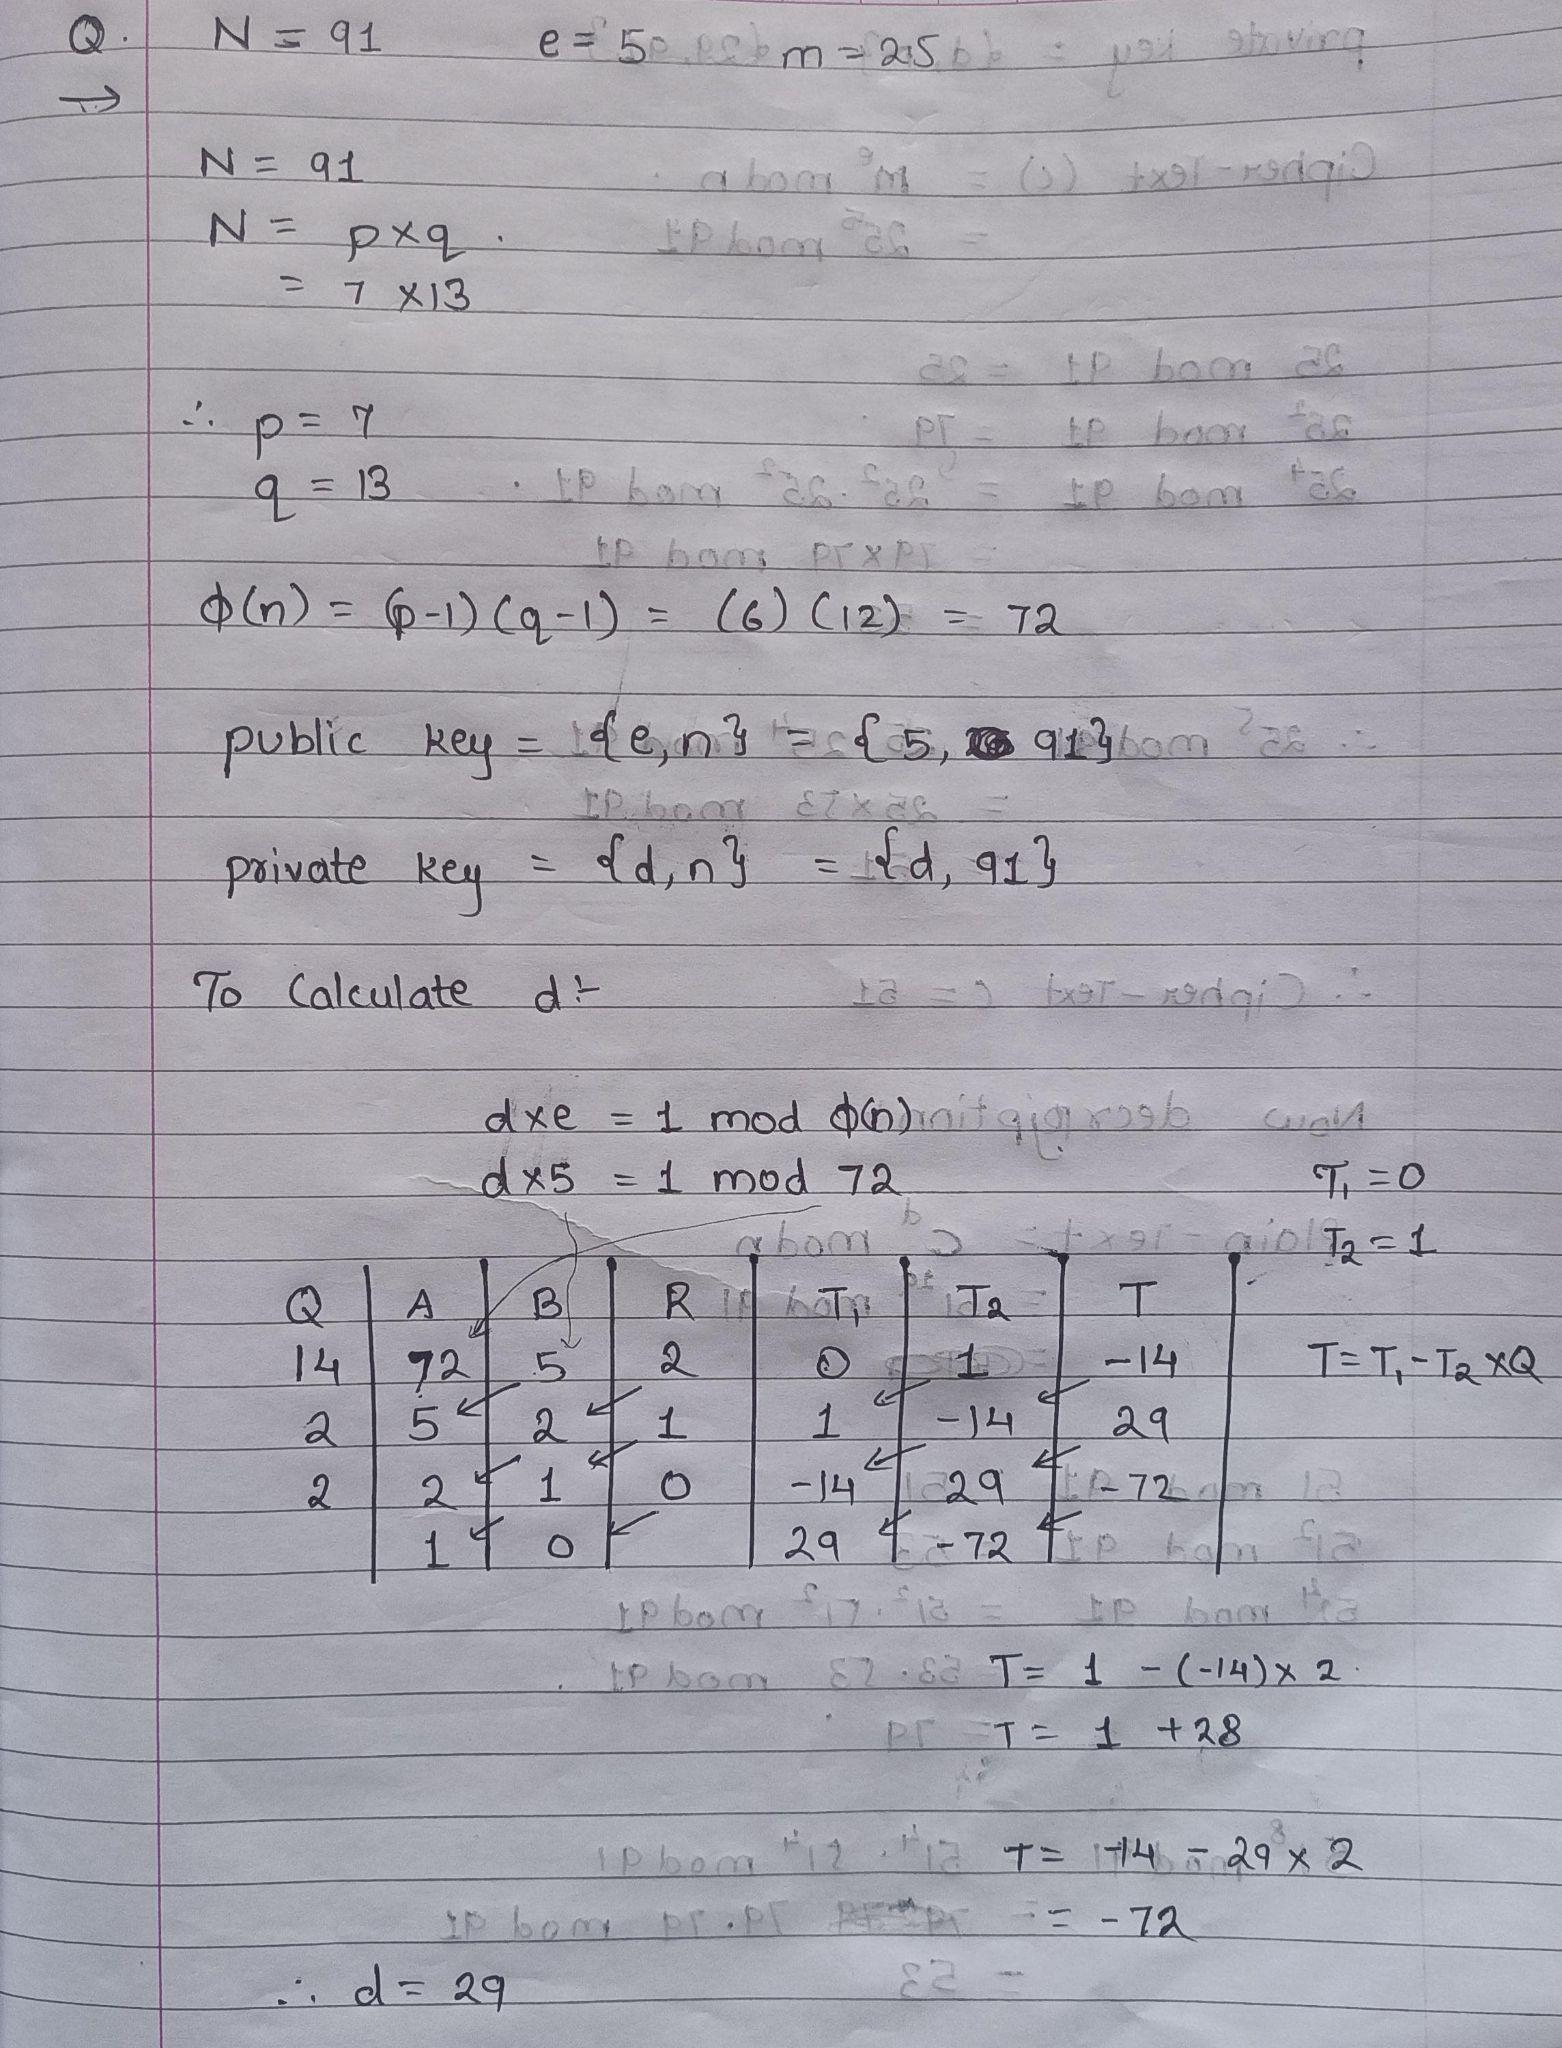 Q. N = 91 e = 5 m = 25
→
N = 91
N = p×q.
= 7 ×13
∴ p = 7
q = 13
ϕ(n) = (p-1) (q-1) = (6) (12) = 72
public key = {e,n} = {5, 91}
private key = {d,n} = {d, 91}
To Calculate d:-
d×e = 1 mod ϕ(n)
d×5 = 1 mod 72 T₁ = 0
T₂ = 1
Q A B R T₁ T₂ T
14 72 5 2 0 1 -14 T = T₁ - T₂ ×Q
2 5 2 1 1 -14 29
2 2 1 0 -14 29 -72
1 0 29 -72
T = 1 - (-14) × 2
T = 1 + 28
T = -14 - 29 × 2
= -72
∴ d = 29